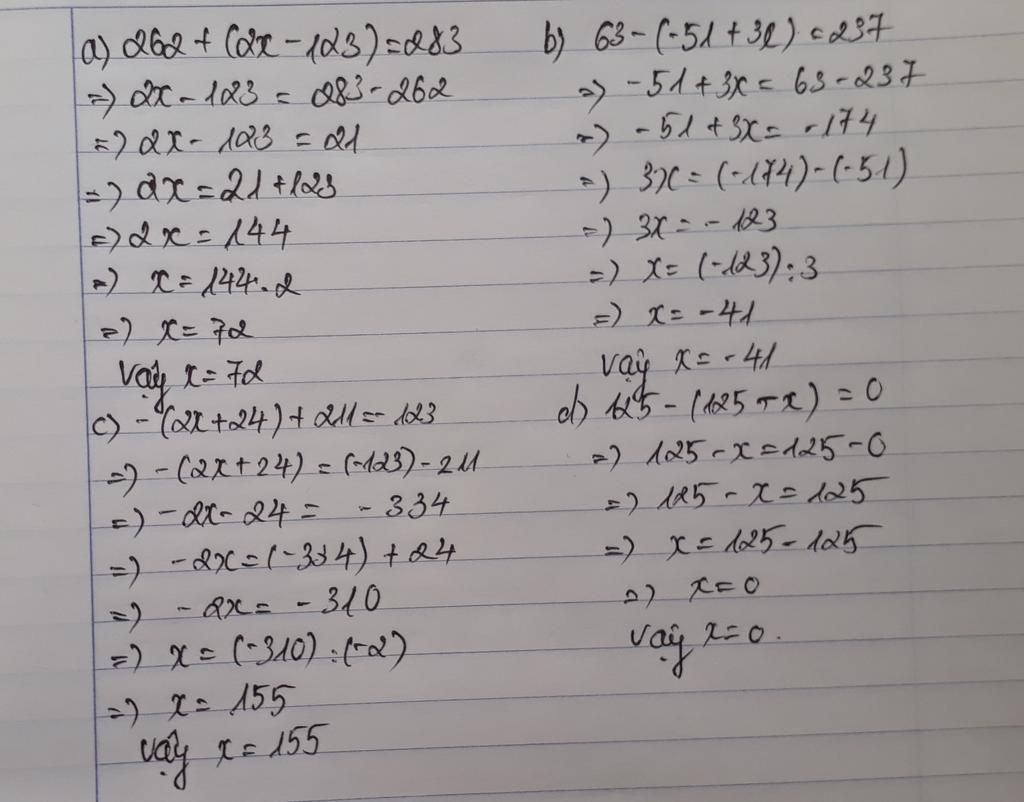 a) 262 + (2x - 123) = 283
=) 2x - 123 = 283 - 262
=) 2x - 123 = 21
=) 2x = 21 + 123
=) 2x = 144
=) x = 144 . 2
=) x = 72
Vậy x = 72
b) 63 - (-51 + 3x) = 237
=) -51 + 3x = 63 - 237
=) -51 + 3x = -174
=) 3x = (-174) - (-51)
=) 3x = - 123
=) x = (-123) : 3
=) x = -41
Vậy x = -41
c) -(2x + 24) + 211 = -123
=) -(2x + 24) = (-123) - 211
=) -2x - 24 = - 334
=) -2x = (-334) + 24
=) -2x = -310
=) x = (-310) : (-2)
=) x = 155
vậy x = 155
d) 125 - (125 - x) = 0
=) 125 - x = 125 - 0
=) 125 - x = 125
=) x = 125 - 125
=) x = 0
vậy x = 0.